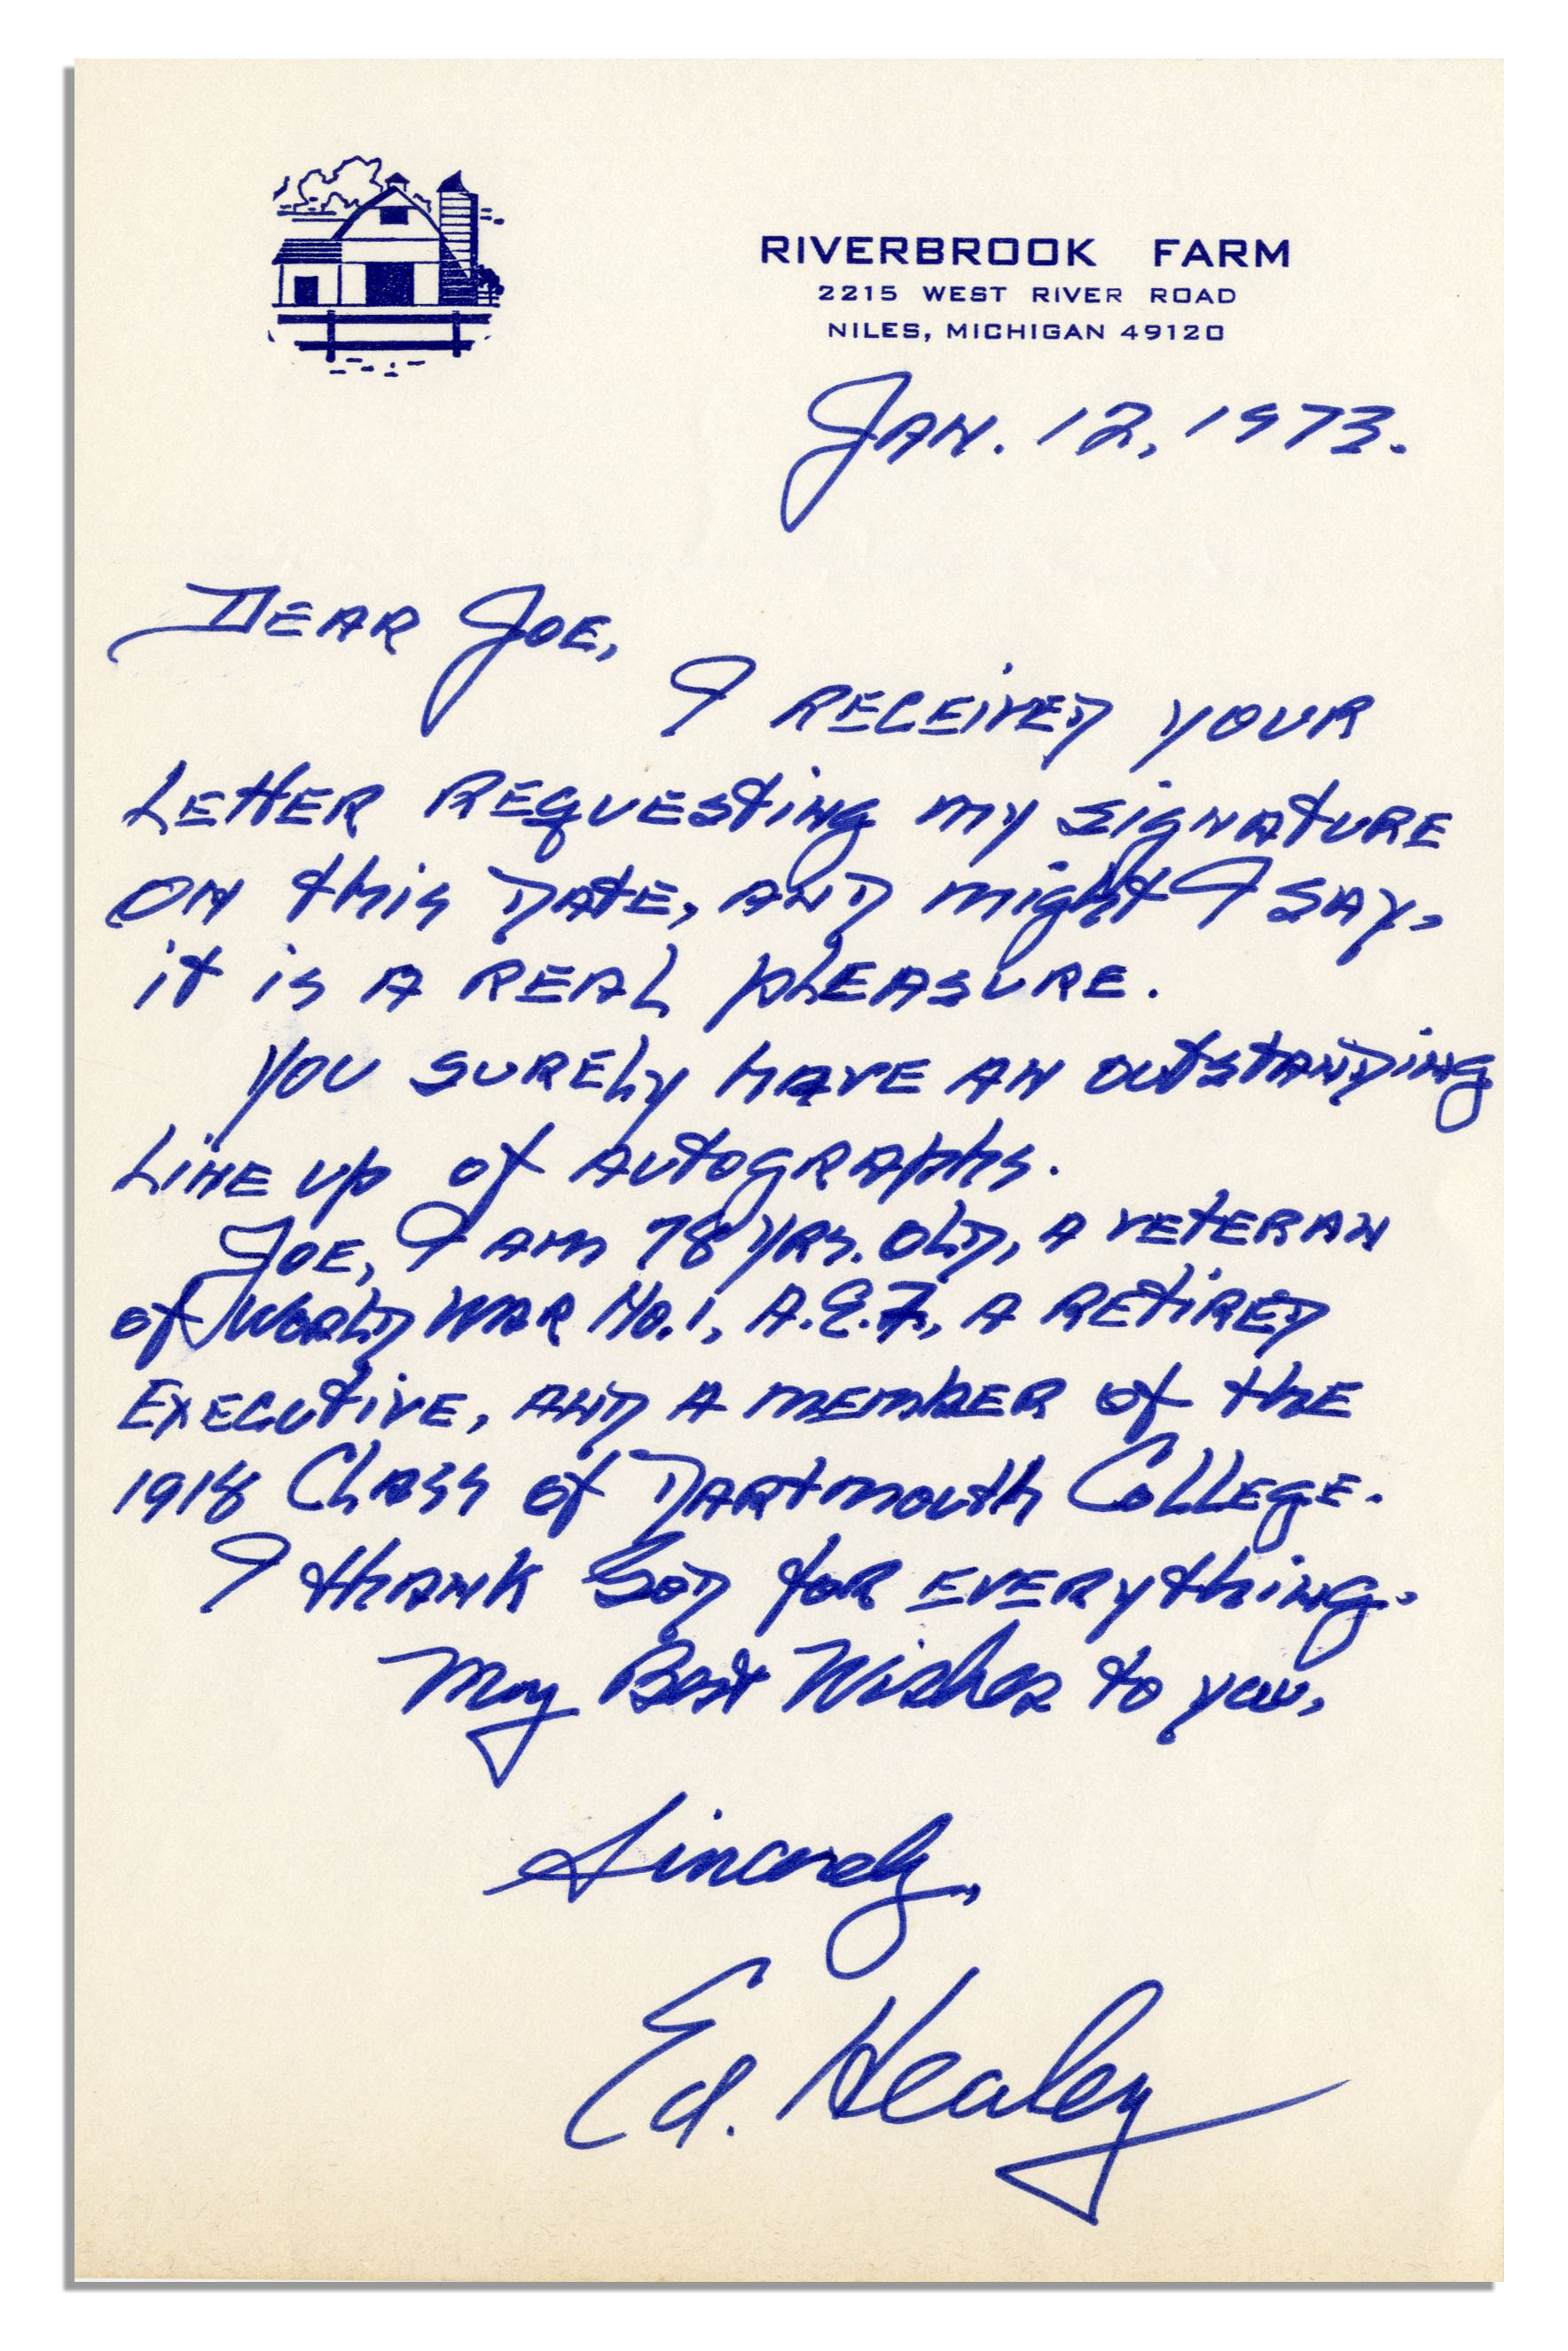 RIVERBROOK FARM
2215 WEST RIVER ROAD
NILES, MICHIGAN 49120
JAN. 12, 1973.
DEAR JOE,
I RECEIVED YOUR
LETTER REQUESTING MY SIGNATURE
ON this DATE, AND might I SAY,
it is A REAL pLEASURE.
YOU SURELY hAVE AN OUTSTANDING
LINE UP of AUTOGRAphs.
JOE, I AM 78 YRS. OLD, A VETERAN
of WORLD WAR NO. 1, A.E.F., A RETIRED
EXECUTIVE, AND A MEMBER of thE
1918 CLASS of DARTMOUTH COLLEGE.
I thANK GOD foR EVERYthiNG.
My Best Wishes to you,
Sincerely,
Ed. Healey